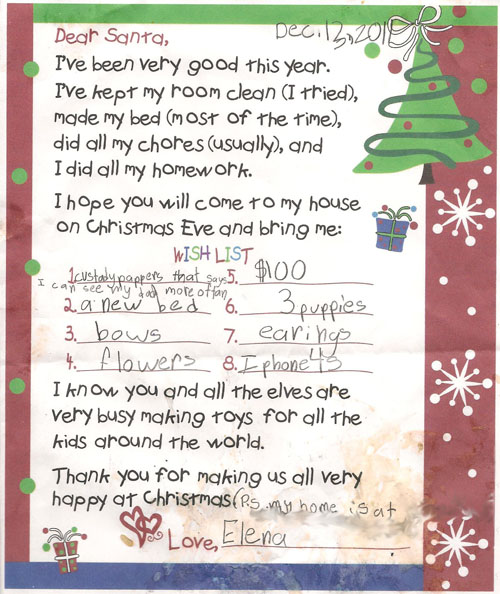 Dear Santa,
Dec. 13, 201
I've been very good this year.
I've kept my room clean (I tried),
made my bed (most of the time),
did all my chores (usually), and
I did all my homework.
I hope you will come to my house
on Christmas Eve and bring me:
WISH LIST
1. custody pappers that says
I can see my dad more oftan
2. a new bed
3. bows
4. flowers
5. $100
6. 3 puppies
7. earings
8. I phone 4s
I know you and all the elves are
very busy making toys for all the
kids around the world.
Thank you for making us all very
happy at Christmas (P.s. my home is at
Love, Elena